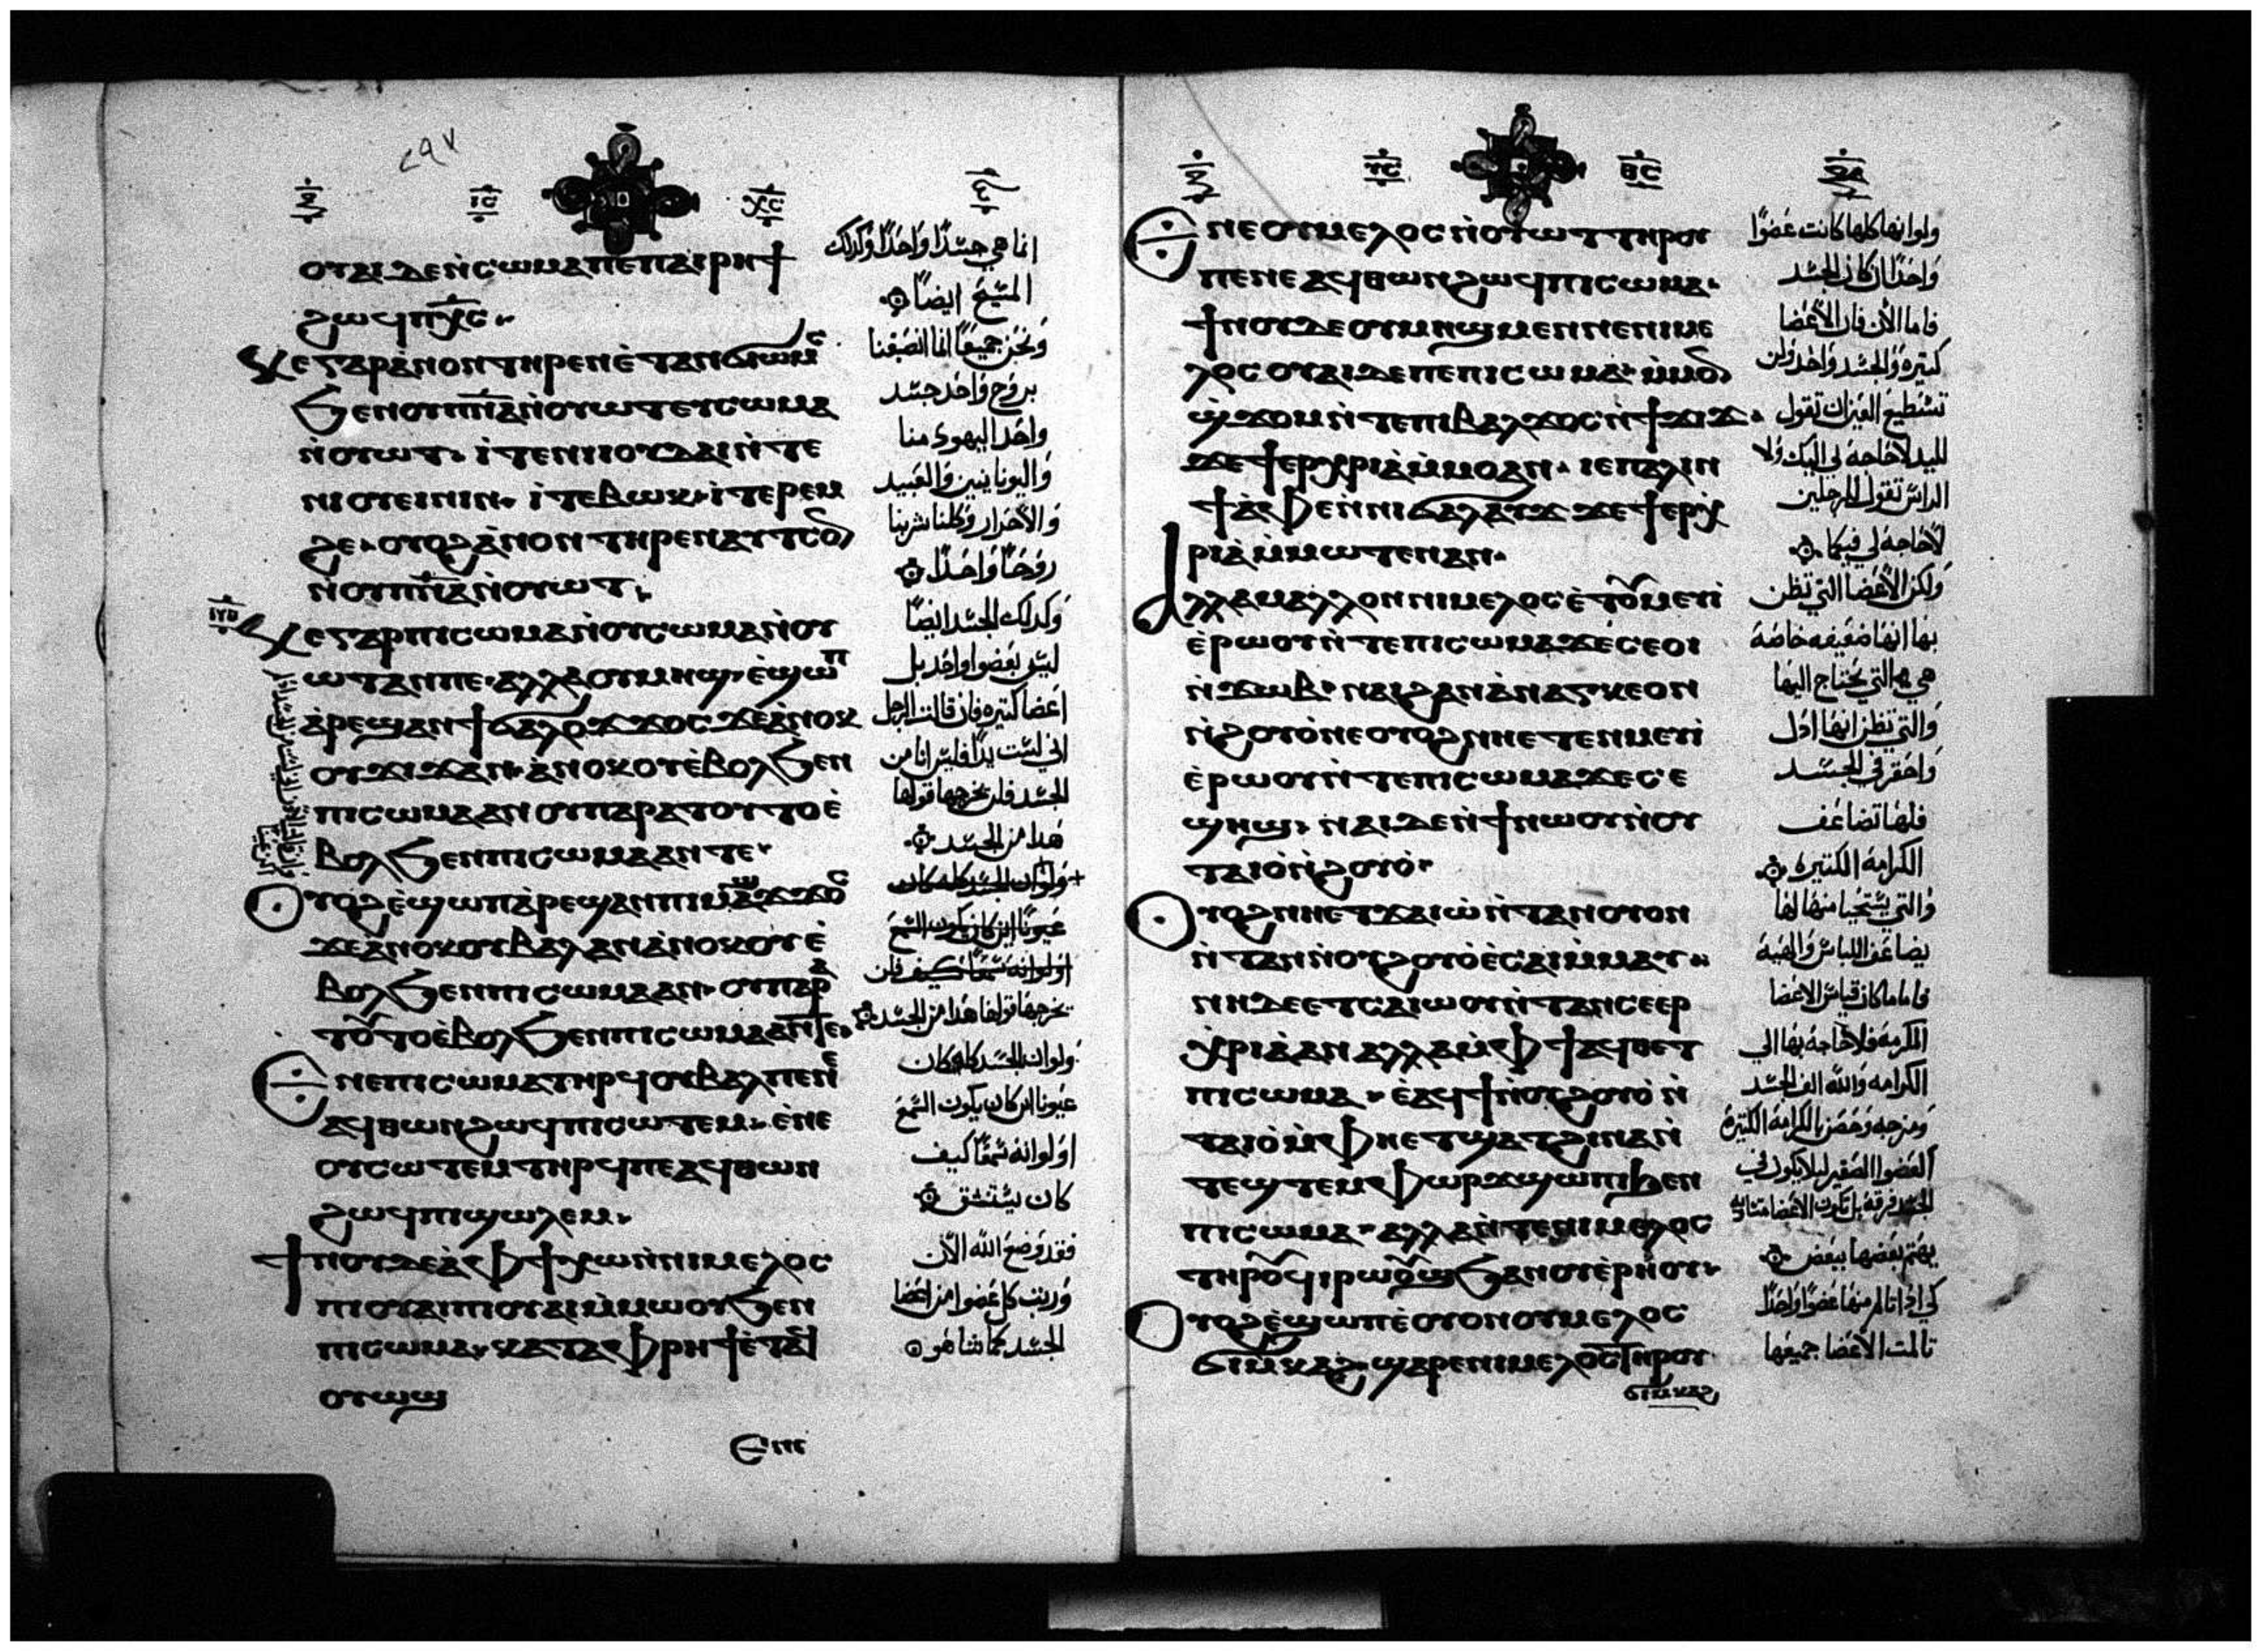 ⲓ̅ⲥ̅ ⲭ̅ⲥ̅
ⲟⲩⲁⲓ ⲇⲉ ⲛ̀ⲥⲱⲙⲁ ⲡⲉ ⲡⲁⲓⲣⲏϯ
ϩⲱϥ ⲡⲭ̅ⲥ̅
ⲕⲉ ⲅⲁⲣ ⲁ̀ⲛⲟⲛ ⲧⲏⲣⲉⲛ ⲉ̀ⲧⲁⲛϭⲓⲱⲙⲥ
ϧⲉⲛ ⲟⲩⲡ̅ⲛ̅ⲁ̅ ⲛ̀ⲟⲩⲱⲧ ⲉⲩⲥⲱⲙⲁ
ⲛ̀ⲟⲩⲱⲧ ⲓ̀ⲧⲉ ⲛⲓⲓⲟⲩⲇⲁⲓ ⲛ̀ⲧⲉ
ⲛⲓⲟⲩⲉⲓⲛⲓⲛ ⲓ̀ⲧⲉ ⲃⲱⲕ ⲓ̀ⲧⲉ ⲣⲉⲙ
ϩⲉ ⲟⲩⲟϩ ⲁ̀ⲛⲟⲛ ⲧⲏⲣⲉⲛ ⲁⲩⲧⲥⲟⲛ
ⲛ̀ⲟⲩⲡ̅ⲛ̅ⲁ̅ ⲛ̀ⲟⲩⲱⲧ
ⲕⲉ ⲅⲁⲣ ⲡⲓⲥⲱⲙⲁ ⲛ̀ⲟⲩⲥⲱⲙⲁ ⲛ̀ⲟⲩ
ⲱⲧ ⲁⲛ ⲡⲉ ⲁⲗⲗⲁ ⲟⲩⲙⲏϣ ⲉ̀ϣⲱⲡ
ⲁ̀ⲣⲉϣⲁⲛ ϯϭⲁⲗⲟϫ ϫⲟⲥ ϫⲉ ⲁ̀ⲛⲟⲕ
ⲟⲩϫⲓϫ ⲁⲛ ⲁⲛⲟⲕ ⲟⲩⲉ̀ⲃⲟⲗ ϧⲉⲛ
ⲡⲓⲥⲱⲙⲁ ⲁⲛ ⲟⲩ ⲡⲁⲣⲁ ⲧⲟⲩⲧⲟ ⲉ̀
ⲃⲟⲗ ϧⲉⲛ ⲡⲓⲥⲱⲙⲁ ⲁⲛ ⲧⲉ
ⲟⲩⲟϩ ⲉ̀ϣⲱⲡ ⲁ̀ⲣⲉϣⲁⲛ ⲡⲓⲙⲁϣϫ ϫⲟⲥ
ϫⲉ ⲁⲛⲟⲕ ⲟⲩⲃⲁⲗ ⲁⲛ ⲁ̀ⲛⲟⲕ ⲟⲩⲉ̀
ⲃⲟⲗ ϧⲉⲛ ⲡⲓⲥⲱⲙⲁ ⲁⲛ ⲟⲩ ⲡⲁⲣⲁ
ⲧⲟⲩⲧⲟ ⲉ̀ⲃⲟⲗ ϧⲉⲛ ⲡⲓⲥⲱⲙⲁ ⲁⲛ ⲧⲉ
ⲉⲛⲉ ⲡⲓⲥⲱⲙⲁ ⲧⲏⲣϥ ⲟⲩⲃⲁⲗ ⲡⲉ ⲛⲉ
ⲁϥⲑⲱⲛ ϩⲱϥ ⲡⲓⲥⲱⲧⲉⲙ ⲉ̀ⲛⲉ
ⲟⲩⲥⲱⲧⲉⲙ ⲧⲏⲣϥ ⲡⲉ ⲁϥⲑⲱⲛ
ϩⲱϥ ⲡⲓϣⲱⲗⲉⲙ
ϯⲛⲟⲩ ⲇⲉ ⲁ̀ ⲫϯ ⲭⲱ ⲛ̀ⲛⲓⲙⲉⲗⲟⲥ
ⲡⲓⲟⲩⲁⲓ ⲡⲓⲟⲩⲁⲓ ⲙ̀ⲙⲱⲟⲩ ϧⲉⲛ
ⲡⲓⲥⲱⲙⲁ ⲕⲁⲧⲁ ⲫⲣⲏϯ ⲉ̀ⲧⲁϥ
ⲟⲩⲱϣ
ⲉⲛⲉ
انما هي جسدًا واحدًا وكذلك
المسيح ايضًا
ونحن جميعًا انما انصبغنا
بروح واحد جسد
واحد اليهود منا
واليونانيين والعبيد
والاحرار وكلنا شربنا
روحًا واحدًا
وكذلك الجسد ايضًا
ليس بعضوا واحد بل
اعضا كتيره فان قالت الرجل
اني لست يدًا فلس انا من
الجسد فلن يخرجها قولها
هذا من الجسد
ولو ان الجسد كله كان
عيونًا اين كان يكون السمع
او لو انه سمعًا كيف فلن
يخرجها قولها هدا من الجسد
ولو ان الجسد كله كان
عيونا اين كان يكون السمع
او لو انه سمعًا كيف
كان يستنشق
فقد وضع الله الان
ورتب كل عضوا من اعضا
الجسد كما شا هو
ⲩ̅ⲥ̅ ⲑ̅ⲥ̅
ⲉⲛⲉ ⲟⲩⲙⲉⲗⲟⲥ ⲛ̀ⲟⲩⲱⲧ ⲧⲏⲣⲟⲩ
ⲡⲉ ⲛⲉ ⲁϥⲑⲱⲛ ϩⲱϥ ⲡⲓⲥⲱⲙⲁ
ϯⲛⲟⲩ ⲇⲉ ⲟⲩⲙⲏϣ ⲙⲉⲛ ⲛⲉ ⲛⲓⲙⲉ
ⲗⲟⲥ ⲟⲩⲁⲓ ⲇⲉ ⲡⲉ ⲡⲓⲥⲱⲙⲁ ⲙ̀ⲙⲟⲛ
ϣ̀ϫⲟⲙ ⲛ̀ⲧⲉ ⲡⲓⲃⲁⲗ ϫⲟⲥ ⲛ̀ϯϫⲓϫ
ϫⲉ ϯⲉⲣⲭⲣⲓⲁ ⲙ̀ⲙⲟ ⲁⲛ ⲓⲉ ⲡⲁⲗⲓⲛ
ϯⲁ̀ⲫⲉ ⲛ̀ⲛⲓϭⲁⲗⲁⲩϫ ϫⲉ ϯⲉⲣⲭ
ⲣⲓⲁ̀ ⲙ̀ⲙⲱⲧⲉⲛ ⲁⲛ
ⲁⲗⲗⲁ ⲙⲁⲗⲗⲟⲛ ⲛⲓⲙⲉⲗⲟⲥ ⲉ̀ⲧⲟⲩⲙⲉⲩⲓ̀
ⲉ̀ⲣⲱⲟⲩ ⲛ̀ⲧⲉ ⲡⲓⲥⲱⲙⲁ ϫⲉ ⲥⲉⲟⲓ
ⲛ̀ϫⲱⲃ ⲛⲁⲓ ϩⲁⲛⲁ̀ⲛⲁⲅⲕⲉⲟⲛ
ⲛ̀ϩⲟⲩⲟ̀ ⲛⲉ ⲟⲩⲟϩ ⲛⲏ ⲉⲧⲉⲛⲙⲉⲩⲓ̀
ⲉ̀ⲣⲱⲟⲩ ⲛ̀ⲧⲉ ⲡⲓⲥⲱⲙⲁ ϫⲉ ⲥⲉ
ϣⲏϣ ⲛⲁⲓ ⲇⲉ ⲛ̀ϯ ⲛⲱⲟⲩ ⲛ̀ⲟⲩ
ⲧⲁⲓⲟ̀ ⲛ̀ϩⲟⲩⲟ̀
ⲟⲩⲟϩ ⲛⲏ ⲉⲧϫⲁⲓⲱ̀ ⲛ̀ⲧⲁⲛ ⲟⲩⲟⲛ
ⲛ̀ⲧⲁⲛ ⲛ̀ⲟⲩϩⲟⲩⲟ̀ ⲉ̀ⲥⲁⲓ ⲙ̀ⲙⲁⲩ
ⲛⲏ ⲇⲉ ⲉⲧⲥⲁⲓⲱⲟⲩ ⲛ̀ⲧⲁⲛ ⲥⲉⲉⲣ
ⲭⲣⲓⲁ̀ ⲁⲛ ⲁⲗⲗⲁ ⲙ̀ⲫϯ ⲁϥⲑⲉⲧ
ⲡⲓⲥⲱⲙⲁ ⲉ̀ⲁϥϯ ⲛ̀ⲟⲩϩⲟⲩⲟ̀ ⲛ̀
ⲧⲁⲓⲟ̀ ⲙ̀ⲫⲏ ⲉⲧϣⲁⲧ ϩⲓⲛⲁ ⲛ̀
ⲧⲉϣⲧⲉⲙ ⲫⲱⲣϫ ϣⲱⲡⲓ ϧⲉⲛ
ⲡⲓⲥⲱⲙⲁ ⲁⲗⲗⲁ ⲛ̀ⲧⲉ ⲛⲓⲙⲉⲗⲟⲥ
ⲧⲏⲣⲟⲩ ϥⲓⲣⲱⲟⲩϣ ϧⲁ ⲛⲟⲩⲉ̀ⲣⲏⲟⲩ
ⲟⲩⲟϩ ⲉ̀ϣⲱⲡ ⲉ̀ⲟⲩⲟⲛ ⲟⲩⲙⲉⲗⲟⲥ
ϭⲓⲙ̀ⲕⲁϩ ϣⲁⲣⲉ ⲛⲓⲙⲉⲗⲟⲥ ⲧⲏⲣⲟⲩ
ϭⲓⲙⲕⲁϩ
ولو انها كلها كانت عضوًا
واحدًا اين كان الجسد
فاما الان فان الاعضا
كتيره والجسد واحد ولن
تستطيع العين ان تقول
لليد لا حاجة لي اليك ولا
الراس تقول للرجلين
لا حاجه لي فيكما
ولكن الاعضا التي تظن
بها انها ضعيفه خاصة
هي التي يحتاج اليها
والتي نظن انها ادل
واحقر في الجسد
فلها تضاعف
الكرامة الكتيره
والتي يستحيا منها لها
يضاعف اللباس والهيبة
فاما ما كان قياس الاعضا
المكرمة فلا حاجة بها الي
الكرامه والله الف الجسد
ومزجه وخصن بالكرامة الكتيرة
العضوا الصغير ليلا يكون في
الجسد فرقة بل تكون الاعضا متساويه
يهتم بعضها ببعض
لكي ادا تالم منها عضوًا واحدًا
تالمت الاعضا جميعها